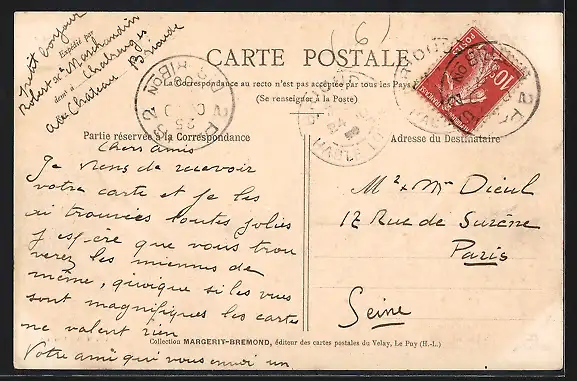 petit bonjour
Expédié par
Robert de Marchaudin
dem' à Chalsuiges
au Château Brioude
(6)
CARTE POSTALE
La Correspondance au recto n'est pas acceptée par tous les Pays
(Se renseigner à la Poste)
Partie réservée à la Correspondance
Adresse du Destinataire
Chers amis
Je viens de recevoir
votre carte et je les
ai trouvées toutes jolies
J'espère que vous trou
verez les miennes de
même, quoique si les vues
sont magnifiques les cartes
ne valent rien
Votre ami qui vous envoi un
Mr & Mme Dieul
17 Rue de Surène
Paris
Seine
POSTES
10
Collection MARGERIT-BREMOND, éditeur des cartes postales du Velay, Le Puy (H.-L.)